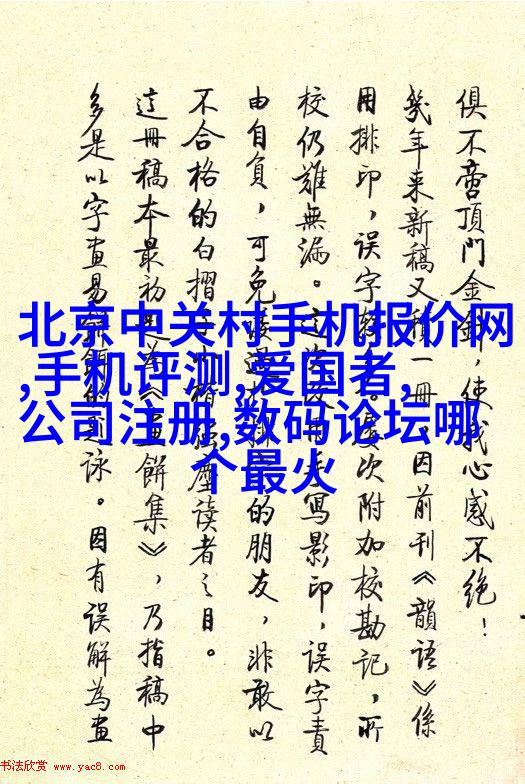 俱不啻頂門金針，使我心感不絕！
幾年来新稿又積一冊。因前刊《韻語》係
用排印，誤字多。次附加校勘記，所
校仍難無漏。這次改用手寫影印，誤字責
由自負，可免的朋友，非敢以
不合格的白摺小楷強塵读者之目。
這冊稿本最初為《畫餅集》，乃指稿中
多是以字畫易的詠。因有誤解為畫
北京中关村手机报价网
,手机评测,爱国者,
公司注册,数码论坛哪
个最火
书法欣赏 www.yac8.com